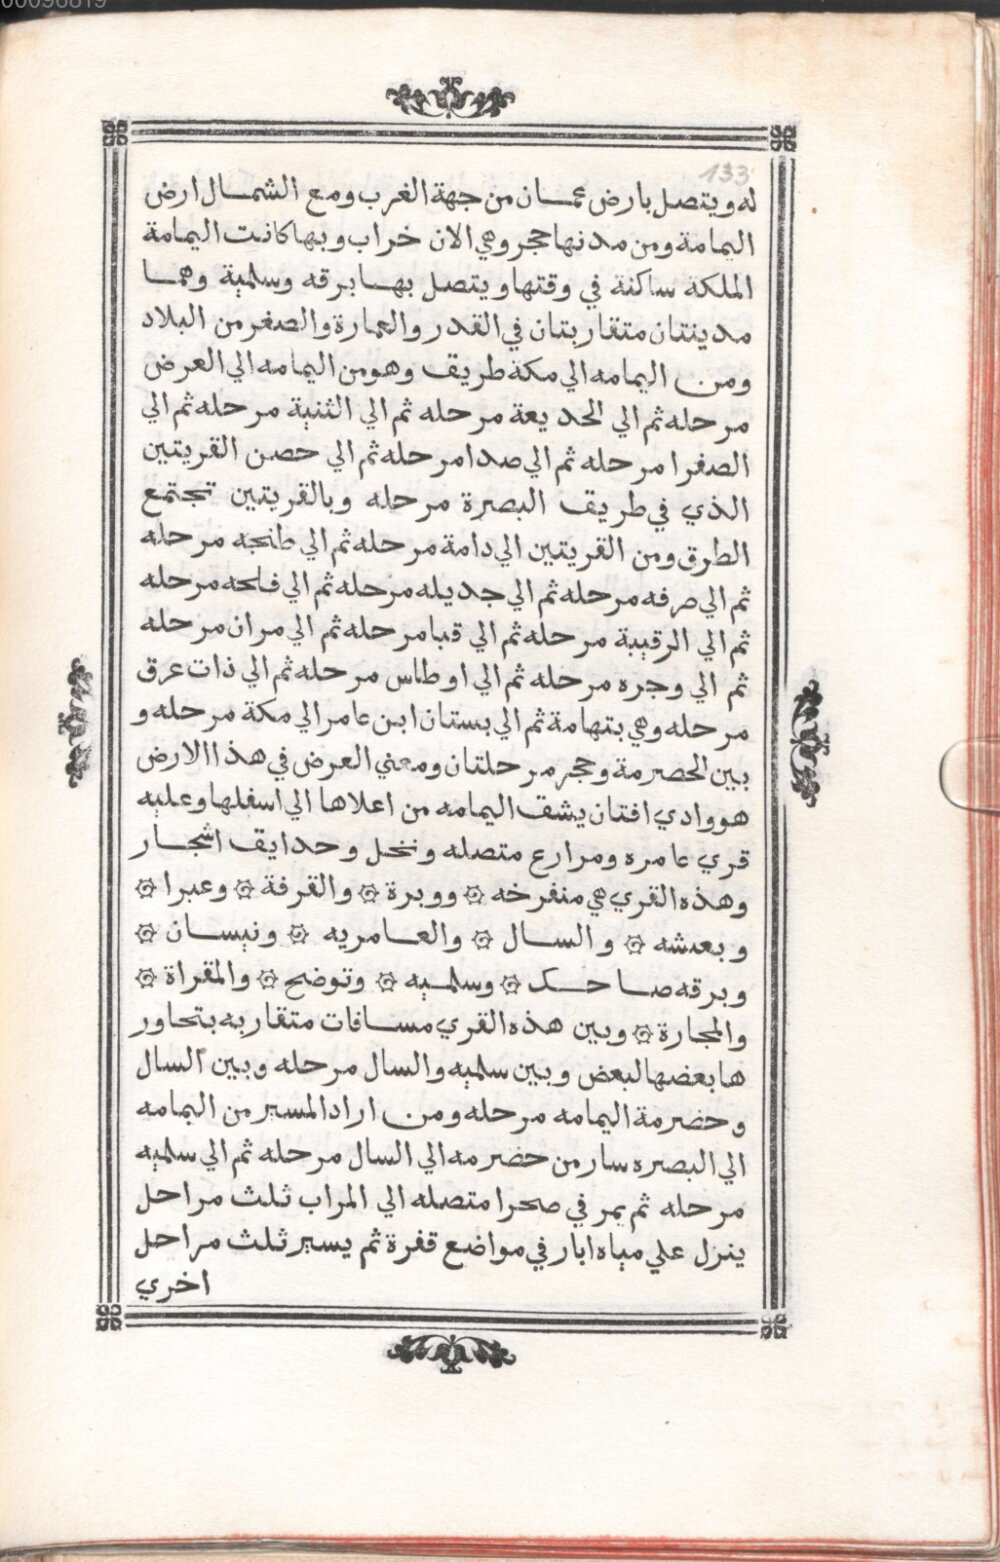 00096819
133
له ويتصل بارض عمـــان من جهة الغرب ومع الشمــال ارض
اليمامة ومن مدنها حجر وهي الان خراب وبها كانت اليمامة
الملكة ساكنة في وقتها ويتصل بهـــا برقه وسلمية وهمـــا
مدينتان متقاربتان في القدر والعمارة والصغر من البلاد
ومن اليمامه الي مكة طريف وهو من اليمامه الي العرض
مرحله ثم الي الحديعة مرحله ثم الي الثنية مرحله ثم الي
الصفرا مرحله ثم الي صدا مرحله ثم الي حصن القريتين
الذي في طريف البصرة مرحله وبالقريتين تجتمع
الطرق ومن القريتين الي دامة مرحله ثم الي طنجه مرحله
ثم الي صرفه مرحله ثم الي جديله مرحله ثم الي فلحه مرحله
ثم الي الرقيبة مرحله ثم الي قبا مرحله ثم الي مران مرحله
ثم الي وجره مرحله ثم الي اوطاس مرحله ثم الي ذات عرق
مرحله وهي بتهامة ثم الي بستان ابن عامر الي مكة مرحله و
بين الحضرمة وحجر مرحلتان ومعني العرض في هذا الارض
هو وادي افتان يشف اليمامه من اعلاها الي اسفلها وعليه
قري عامره ومرارع متصله ونخل وحدايف اشجــار
وهذه القري هي منفرخه ۞ ووبرة ۞ والقرفة ۞ وعبرا ۞
وبعشه ۞ والســال ۞ والعــامريه ۞ ونيســان ۞
وبرقه صــاحــك ۞ وسلمــيه ۞ وتوضح ۞ والمقراة ۞
والمجارة ۞ وبين هذه القري مســافات متقاربه بتحاور
ها بعضها لبعض وبين سلميه والسال مرحله وبين السال
وحضرمة اليمامه مرحله ومن اراد المسير من اليمامه
الي البصره سار من حضرمه الي السال مرحله ثم الي سلميه
مرحله ثم يمر في صحرا متصله الي المراب ثلث مراحل
ينزل علي مياه ابار في مواضع قفرة ثم يسير ثلث مراحل
اخري